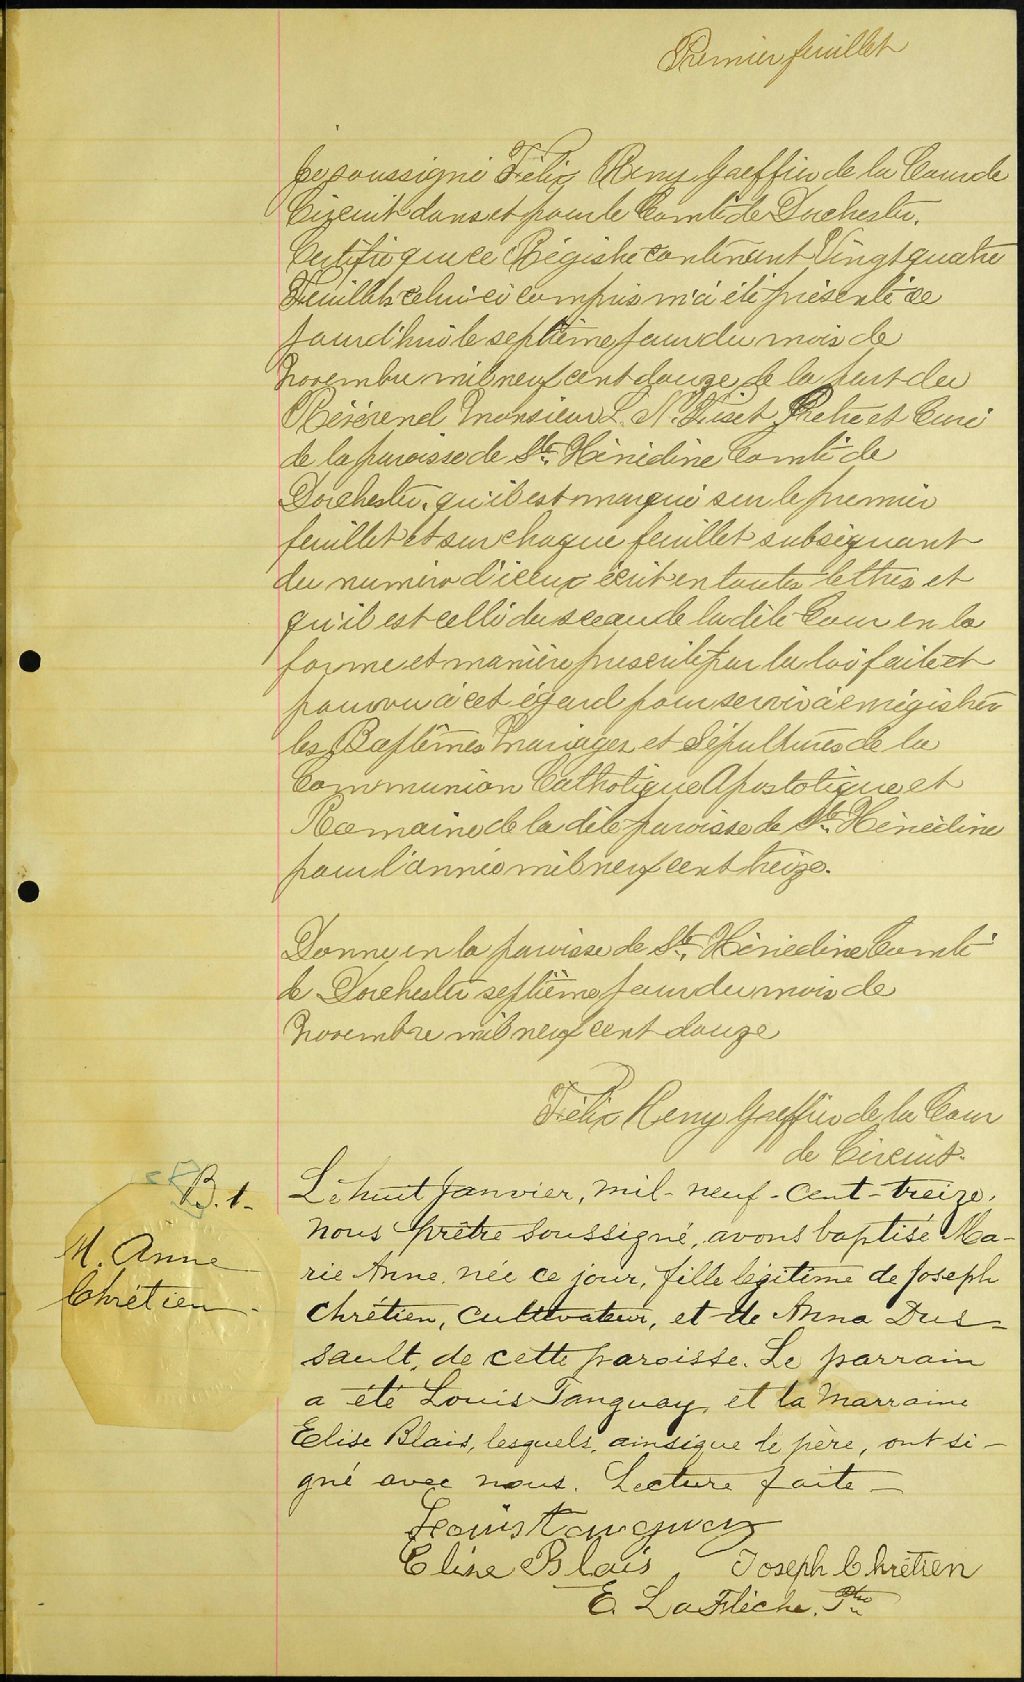 Premier feuillet
Je soussigné Félix Remy Greffier de la Cour de
Circuit dans et pour le Comté de Dorchester.
Certifie que ce Régistre contenant Vingt quatre
Feuillets celui ci compris m'a été présenté ce
jourd'hui le septième jour du mois de
Novembre mil neuf cent douze de la part du
Révérend Monsieur L. N. Fiset Prêtre et Curé
de la paroisse de Ste. Hénédine Comté de
Dorchester. qu'il est marqué sur le premier
feuillet et sur chaque feuillet subséquant
du numéro d'iceux écrit en toutes lettres et
qu'il est cellé du sceau de la dite Cour en la
forme et manière prescrite par la loi faite et
pourvu à cet égard pour servir à enrégistrer
les Baptêmes Mariages et Sépultures de la
Communion Catholique Apostolique et
Romaine de la dite paroisse de Ste. Hénédine
pour l'année mil neuf cent treize.
Donné en la paroisse de Ste. Hénédine Comté
de Dorchester septième jour du mois de
Novembre mil neuf cent douze
Félix Remy Greffier de la Cour
de Circuit.
B. 1.
M. Anne
Chrétien.
Le huit Janvier, mil-neuf-cent-treize,
nous prêtre soussigné, avons baptisé Ma-
rie Anne, née ce jour, fille légitime de Joseph
Chrétien, cultivateur, et de Anna Dus-
sault, de cette paroisse. Le parrain
a été Louis Tanguay, et la marraine
Elise Blais, lesquels, ainsi que le père, ont si-
gné avec nous. Lecture faite—
Louis Tanguay
Elise Blais Joseph Chrétien
E. LaFlèche, Ptre